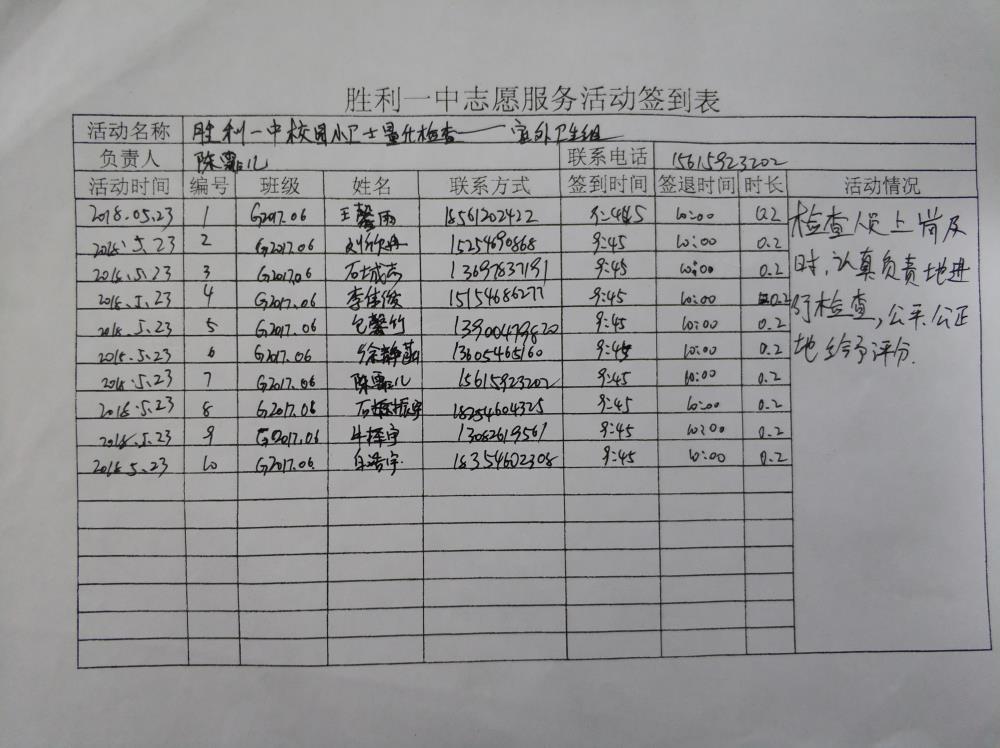 胜利一中志愿服务活动签到表
活动名称 胜利一中校园小卫士量化检查——室外卫生组
负责人 陈霏儿 联系电话 15615923202
活动时间 编号 班级 姓名 联系方式 签到时间 签退时间 时长 活动情况
2018.05.23 1 G2017.06 王馨雨 18561202422 9:45 10:00 0.2
2018.5.23 2 G2017.06 15254690868 9:45 10:00 0.2
2018.5.23 3 G2017.06 石城志 13697837191 9:45 10:00 0.2
2018.5.23 4 G2017.06 李佳俊 15154686277 9:45 10:00 0.2
2018.5.23 5 G2017.06 包馨竹 13900479820 9:45 10:00 0.2
2018.5.23 6 G2017.06 徐静茹 13605465160 9:45 10:00 0.2
2018.5.23 7 G2017.06 陈霏儿 15615923202 9:45 10:00 0.2
2018.5.23 8 G2017.06 石振宇 18254604325 9:45 10:00 0.2
2018.5.23 9 G2017.06 牛择宇 13082619561 9:45 10:00 0.2
2018.5.23 10 G2017.06 18354602308 9:45 10:00 0.2
检查人员上岗及
时,认真负责地进
行检查,公平公正
地给予评分.